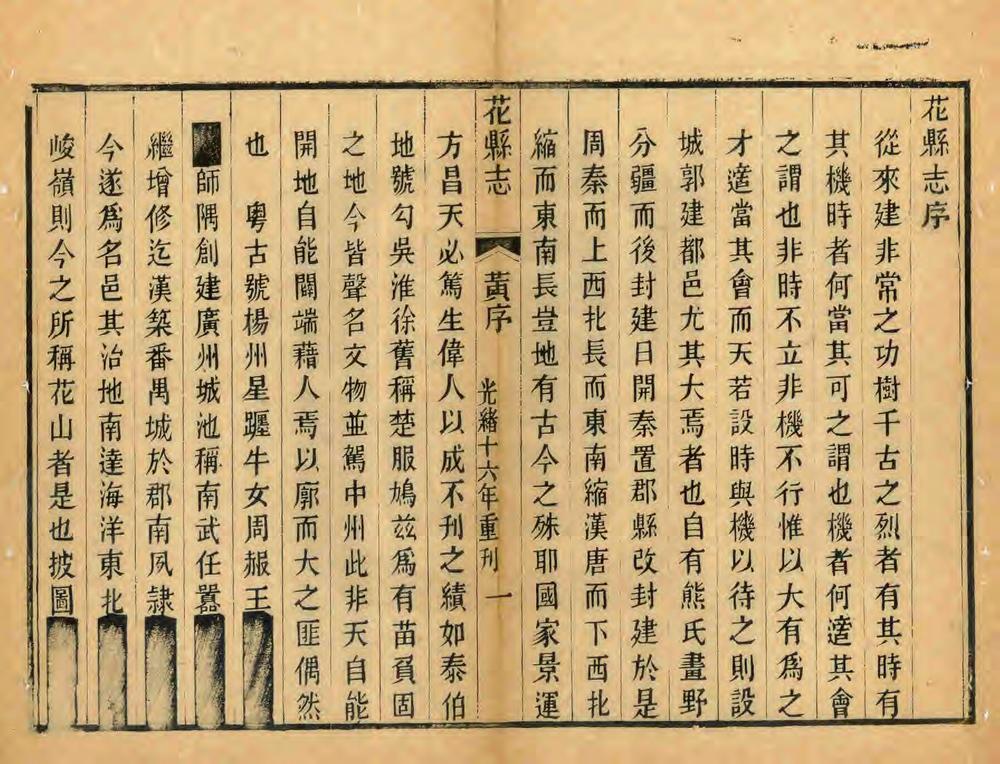 花縣志序
從來建非常之功樹千古之烈者有其時有
其機時者何當其可之謂也機者何適其會
之謂也非時不立非機不行惟以大有爲之
才適當其會而天若設時與機以待之則設
城郭建都邑尤其大焉者也自有熊氏畫野
分疆而後封建日開秦置郡縣改封建於是
周秦而上西北長而東南縮漢唐而下西北
縮而東南長豈地有古今之殊耶國家景運
花縣志 黃序 光緒十六年重刊 一
方昌天必篤生偉人以成不刊之績如泰伯
地號勾吳淮徐舊稱楚服鳩兹爲有苗負固
之地今皆聲名文物並駕中州此非天自能
開地自能闢端藉人焉以廓而大之匪偶然
也 粤古號楊州星躔牛女周赧王
師隅創建廣州城池稱南武任囂
繼增修迄漢築番禺城於郡南夙隸
今遂爲名邑其治地南達海洋東北
峻嶺則今之所稱花山者是也披圖